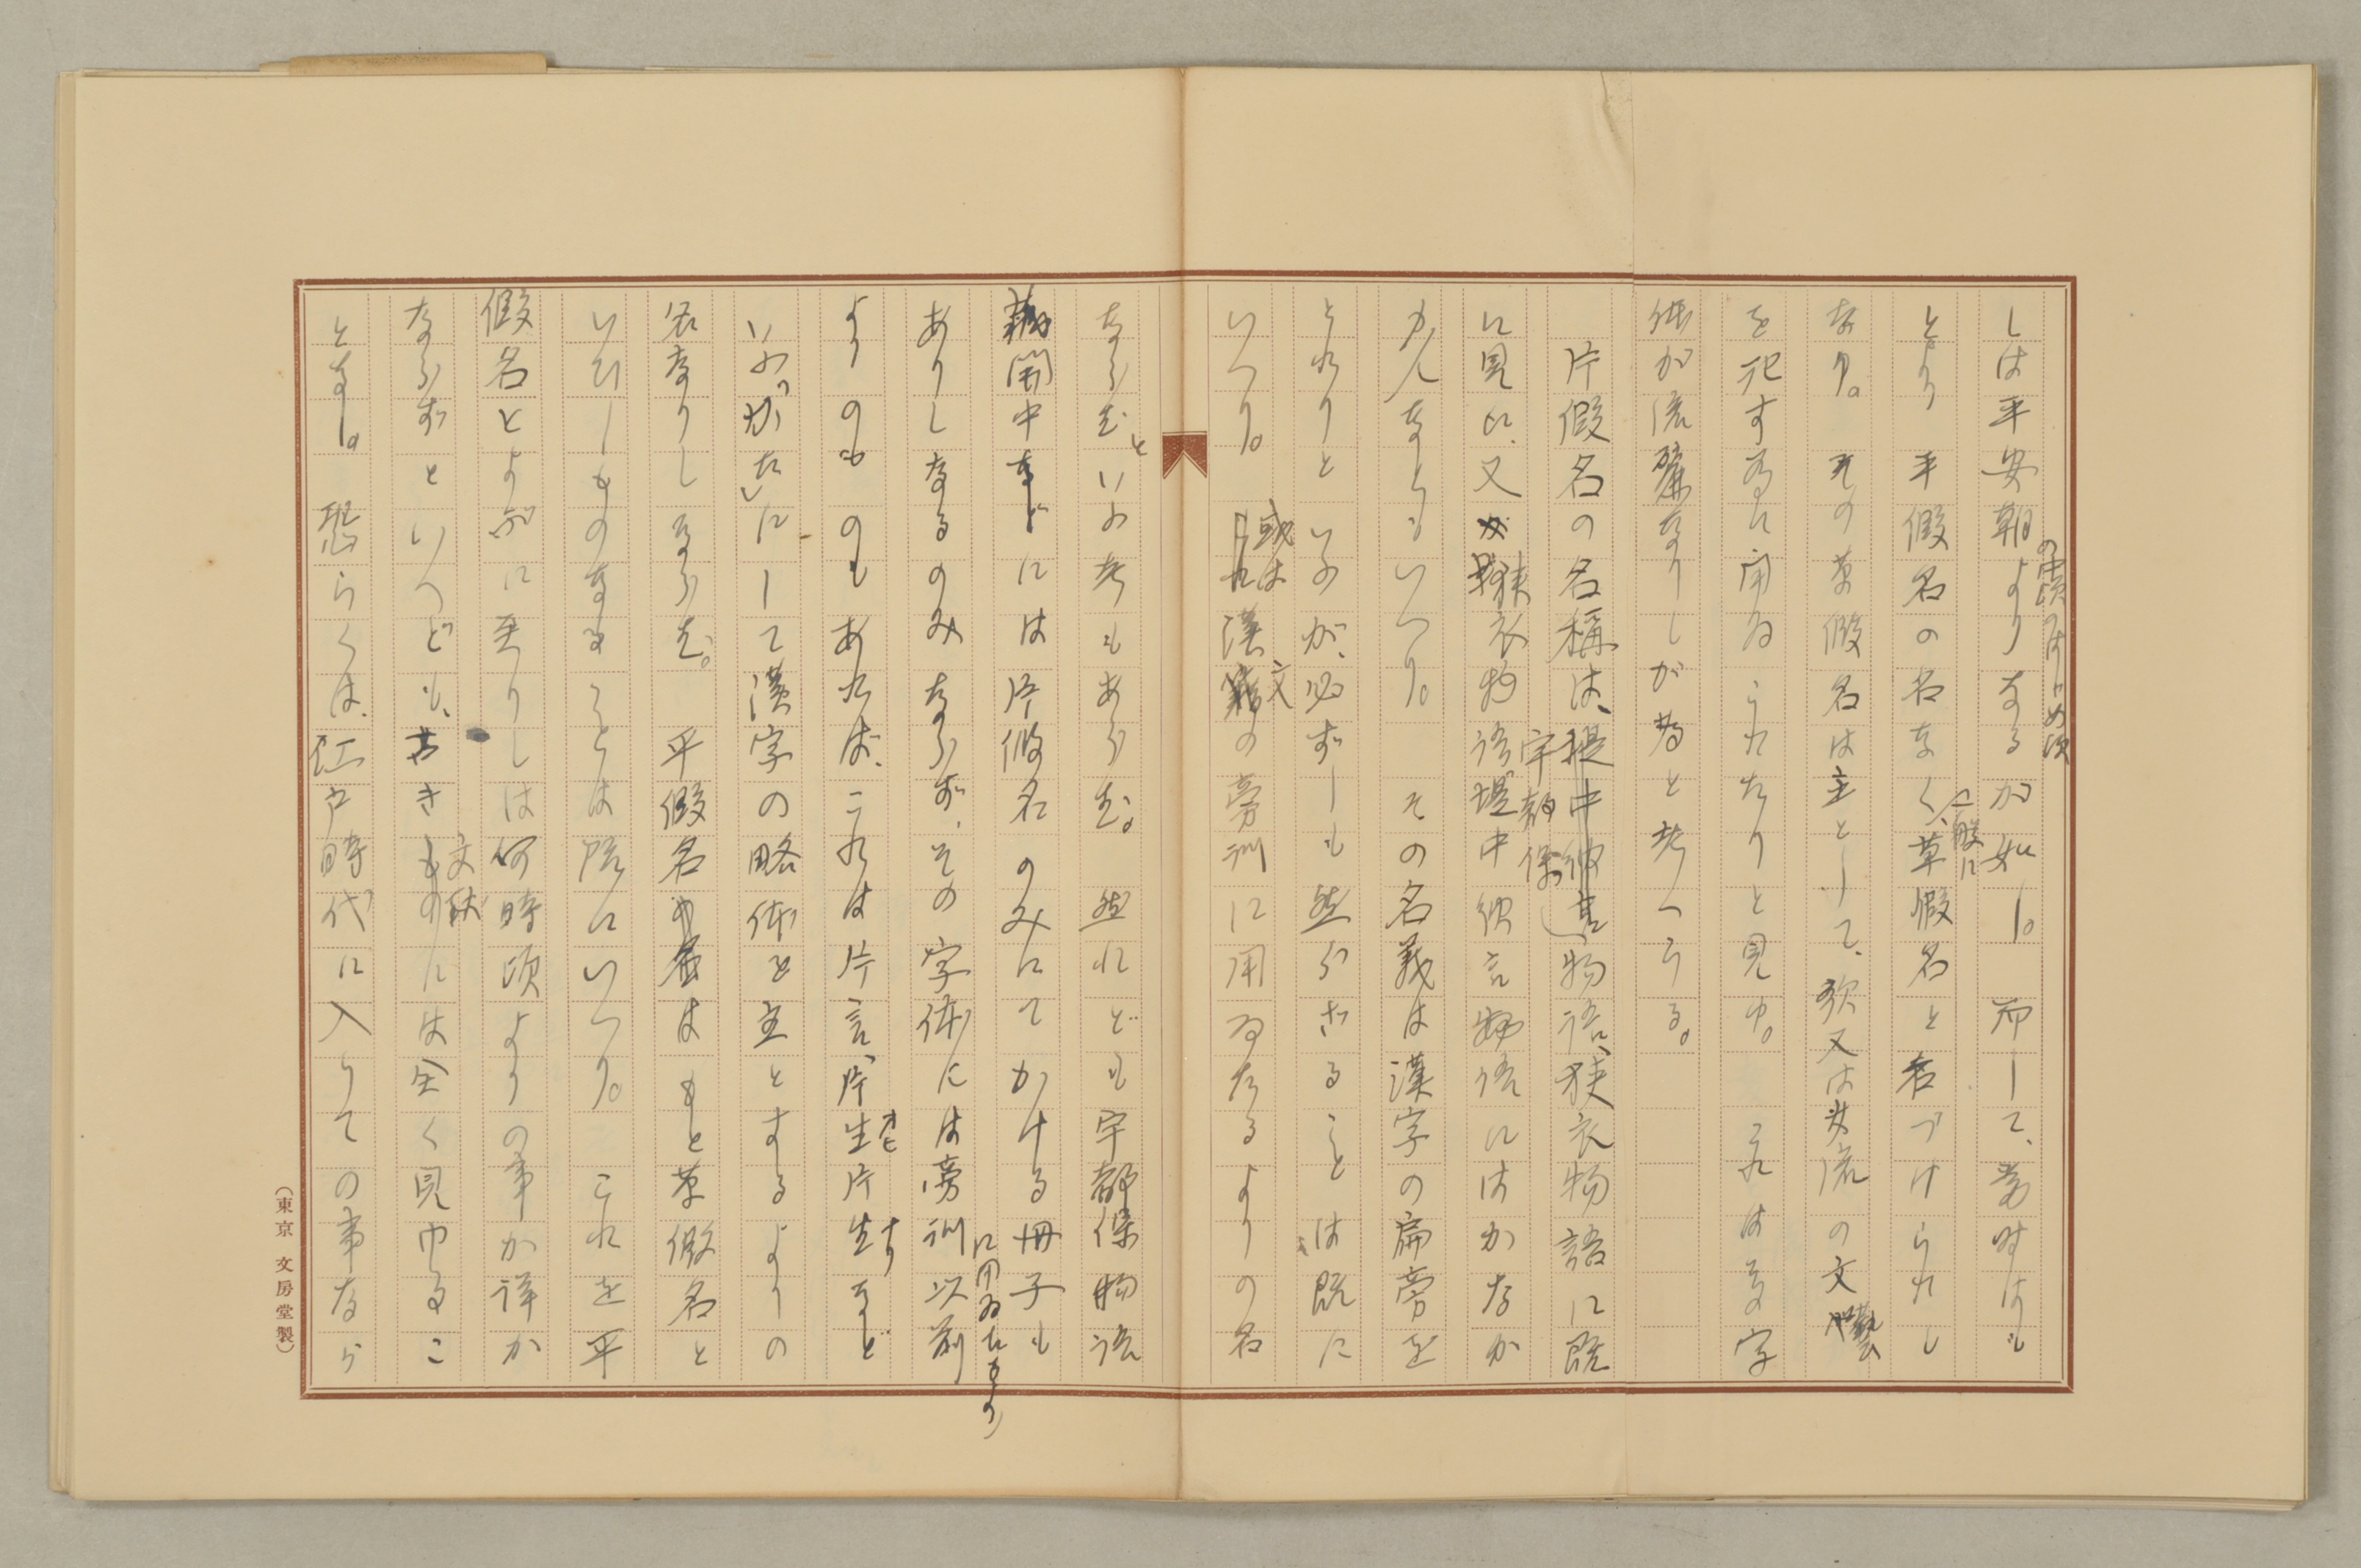 しは平安朝の頃のはじめ頃よりなるが如し。而して、当時はも
とより平假名の名なく、一般に草假名と名づけられし
なり。その草假名は主として、歌又は女流の文藝
を記す為に用ゐられたりと見ゆ。これはその字
体が流麗なりしが為と考へらる。
片假名の名稱は、宇都保物語、狹衣物語に既
に見え、又狹衣物語堤中納言物語にはかなか
んなともいへり。その名義は漢字の扁旁を
とれりといふが、必ずしも然らざることは既に
いへり。或は漢文の旁訓に用ゐたるよりの名
ならむといふ考もあらむ。然れども宇都保物語
藏開中などには片假名のみにてかける冊子も
ありしなるのみならず、その字体には旁訓に用ゐたる以前
よりのものもあれば、これは片言、片生オヒ片生ナリなど
いふ「かた」にして漢字の略体を主とするよりの
名なりしならむ。平假名の名はもと草假名と
いひしものなることは既にいへり。これを平
假名とよぶに至りしは何時頃よりの事か詳か
ならずといへども、古き文献には全く見ゆるこ
となし。恐らくは、江戸時代に入りての事なら
（東京 文房堂製）